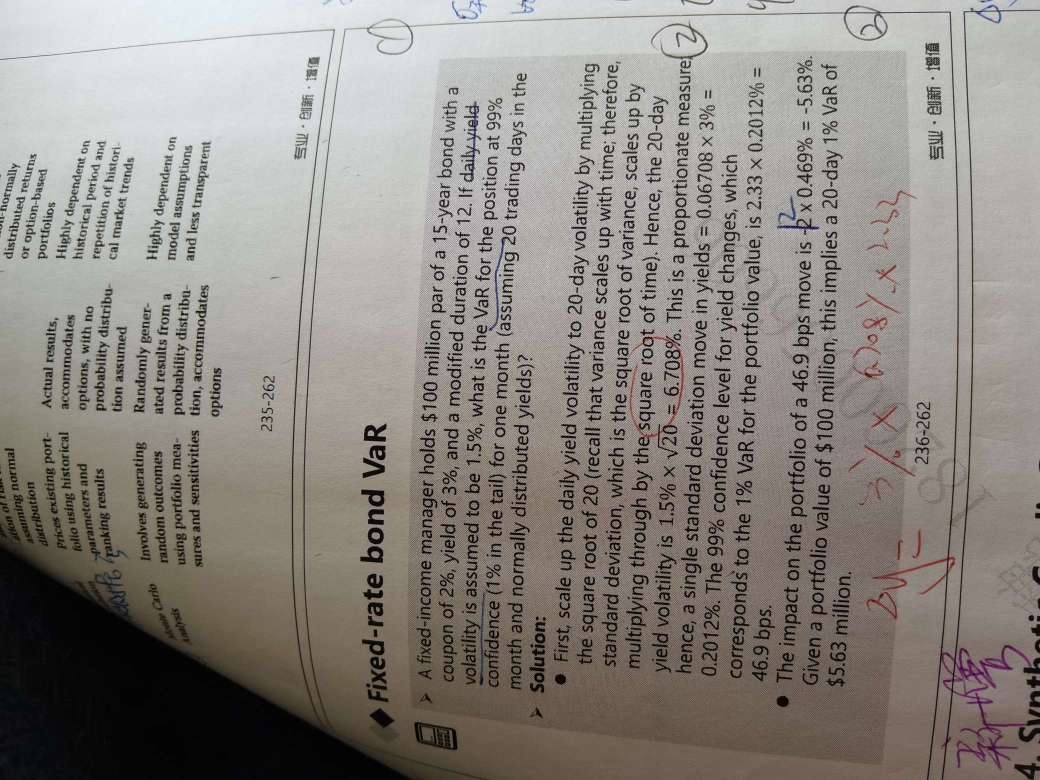 distributed returns
or option-based
portfolios
assuming normal
distribution
Prices existing port-
folio using historical
parameters and
ranking results
Actual results,
accommodates
options, with no
probability distribu-
tion assumed
Highly dependent on
historical period and
repetition of histori-
cal market trends
Monte Carlo
Analysis
Involves generating
random outcomes
using portfolio mea-
sures and sensitivities
Randomly gener-
ated results from a
probability distribu-
tion, accommodates
options
Highly dependent on
model assumptions
and less transparent
235-262
专业·创新·增值
◆ Fixed-rate bond VaR
➢ A fixed-income manager holds $100 million par of a 15-year bond with a
coupon of 2%, yield of 3%, and a modified duration of 12. If daily yield
volatility is assumed to be 1.5%, what is the VaR for the position at 99%
confidence (1% in the tail) for one month (assuming 20 trading days in the
month and normally distributed yields)?
➢ Solution:
● First, scale up the daily yield volatility to 20-day volatility by multiplying
the square root of 20 (recall that variance scales up with time; therefore,
standard deviation, which is the square root of variance, scales up by
multiplying through by the square root of time). Hence, the 20-day
yield volatility is 1.5% × √20 = 6.708%. This is a proportionate measure;
hence, a single standard deviation move in yields = 0.06708 × 3% =
0.2012%. The 99% confidence level for yield changes, which
corresponds to the 1% VaR for the portfolio value, is 2.33 × 0.2012% =
46.9 bps.
● The impact on the portfolio of a 46.9 bps move is -12 x 0.469% = -5.63%.
Given a portfolio value of $100 million, this implies a 20-day 1% VaR of
$5.63 million.
① 
③
②
3% × 6.708% × 2.33
236-262
专业·创新·增值